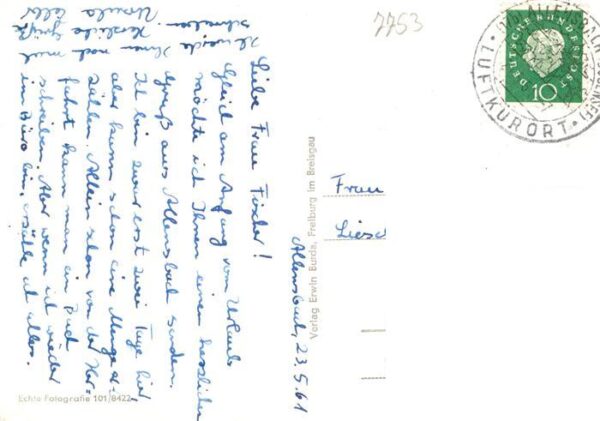 7753
Allensbach, 23.5.61
Liebe Frau Fischer!
Gleich am Anfang vom Urlaub
möchte ich Ihnen einen herzlichen
Gruß aus Allensbach senden.
Ich bin zwar erst zwei Tage hier
aber kann schon eine Menge er-
zählen. Allein schon von der Her-
fahrt kann man ein Buch
schreiben. Aber wenn ich wieder
im Büro bin, erzähle ich alles.
Ich werde Ihnen noch mal
schreiben. Herzliche Grüße
Ursula
Echte Fotografie 101/8422
Verlag Erwin Burda, Freiburg im Breisgau
Frau
Liesel
DEUTSCHE BUNDESPOST
10
ALLENSBACH
LUFTKURORT